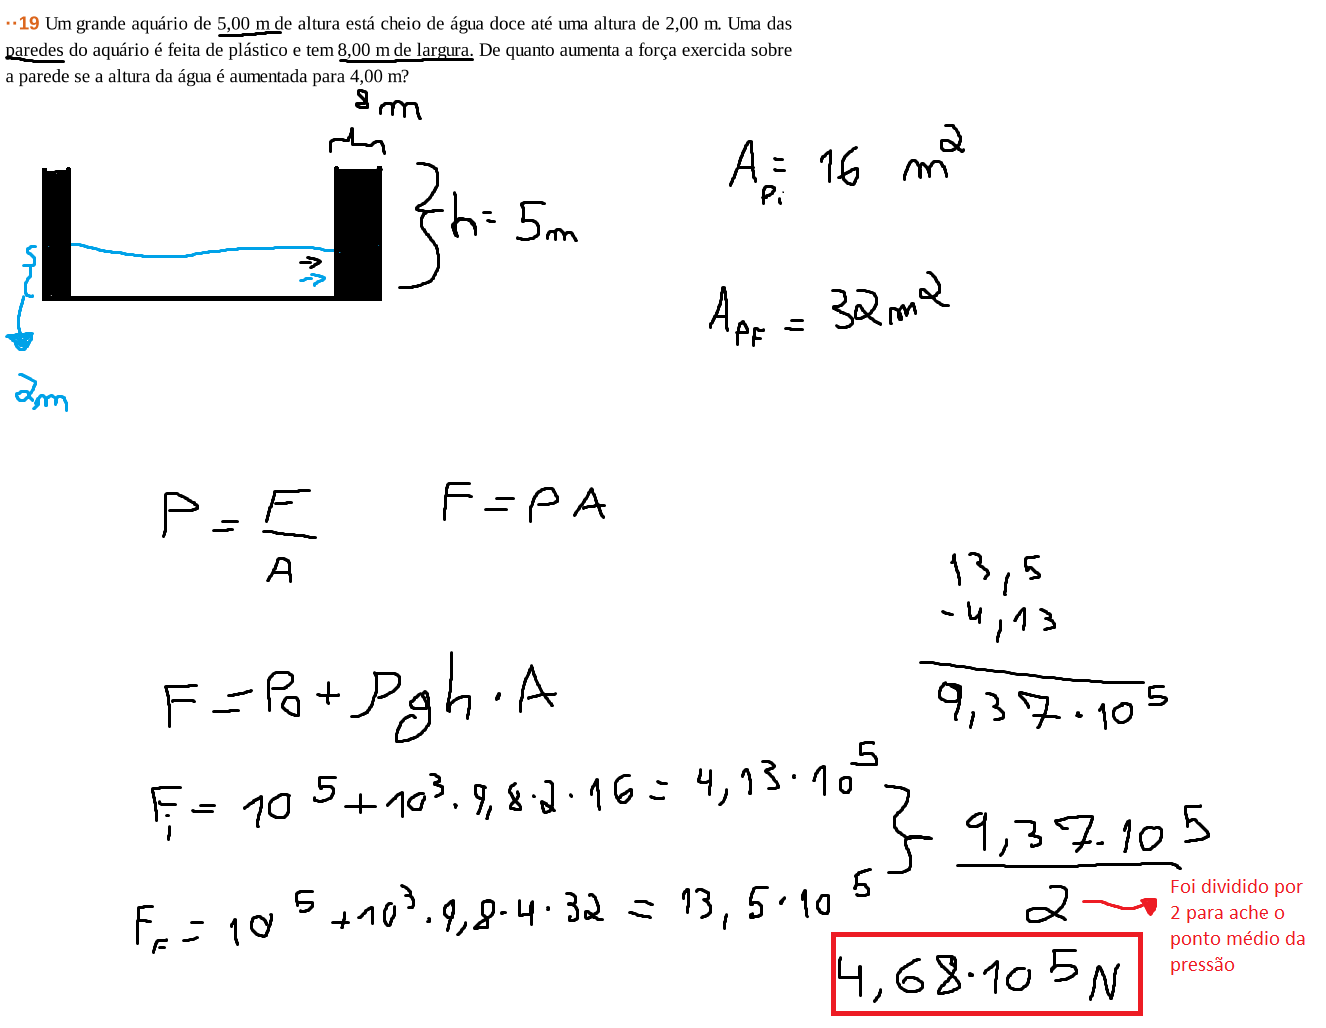 ··19 Um grande aquário de 5,00 m de altura está cheio de água doce até uma altura de 2,00 m. Uma das
paredes do aquário é feita de plástico e tem 8,00 m de largura. De quanto aumenta a força exercida sobre
a parede se a altura da água é aumentada para 4,00 m?
8 m
h = 5m
2,m
A_Pi = 16 m²
A_PF = 32 m²
P = F/A
F = P A
F = P₀ + ρgh · A
F_i = 10⁵ + 10³ · 9,8 · 2 · 16 = 4,13 · 10⁵
F_F = 10⁵ + 10³ · 9,8 · 4 · 32 = 13,5 · 10⁵
13,5
- 4,13
9,37 · 10⁵
9,37 · 10⁵
2
Foi dividido por
2 para ache o
ponto médio da
pressão
4,68 · 10⁵ N